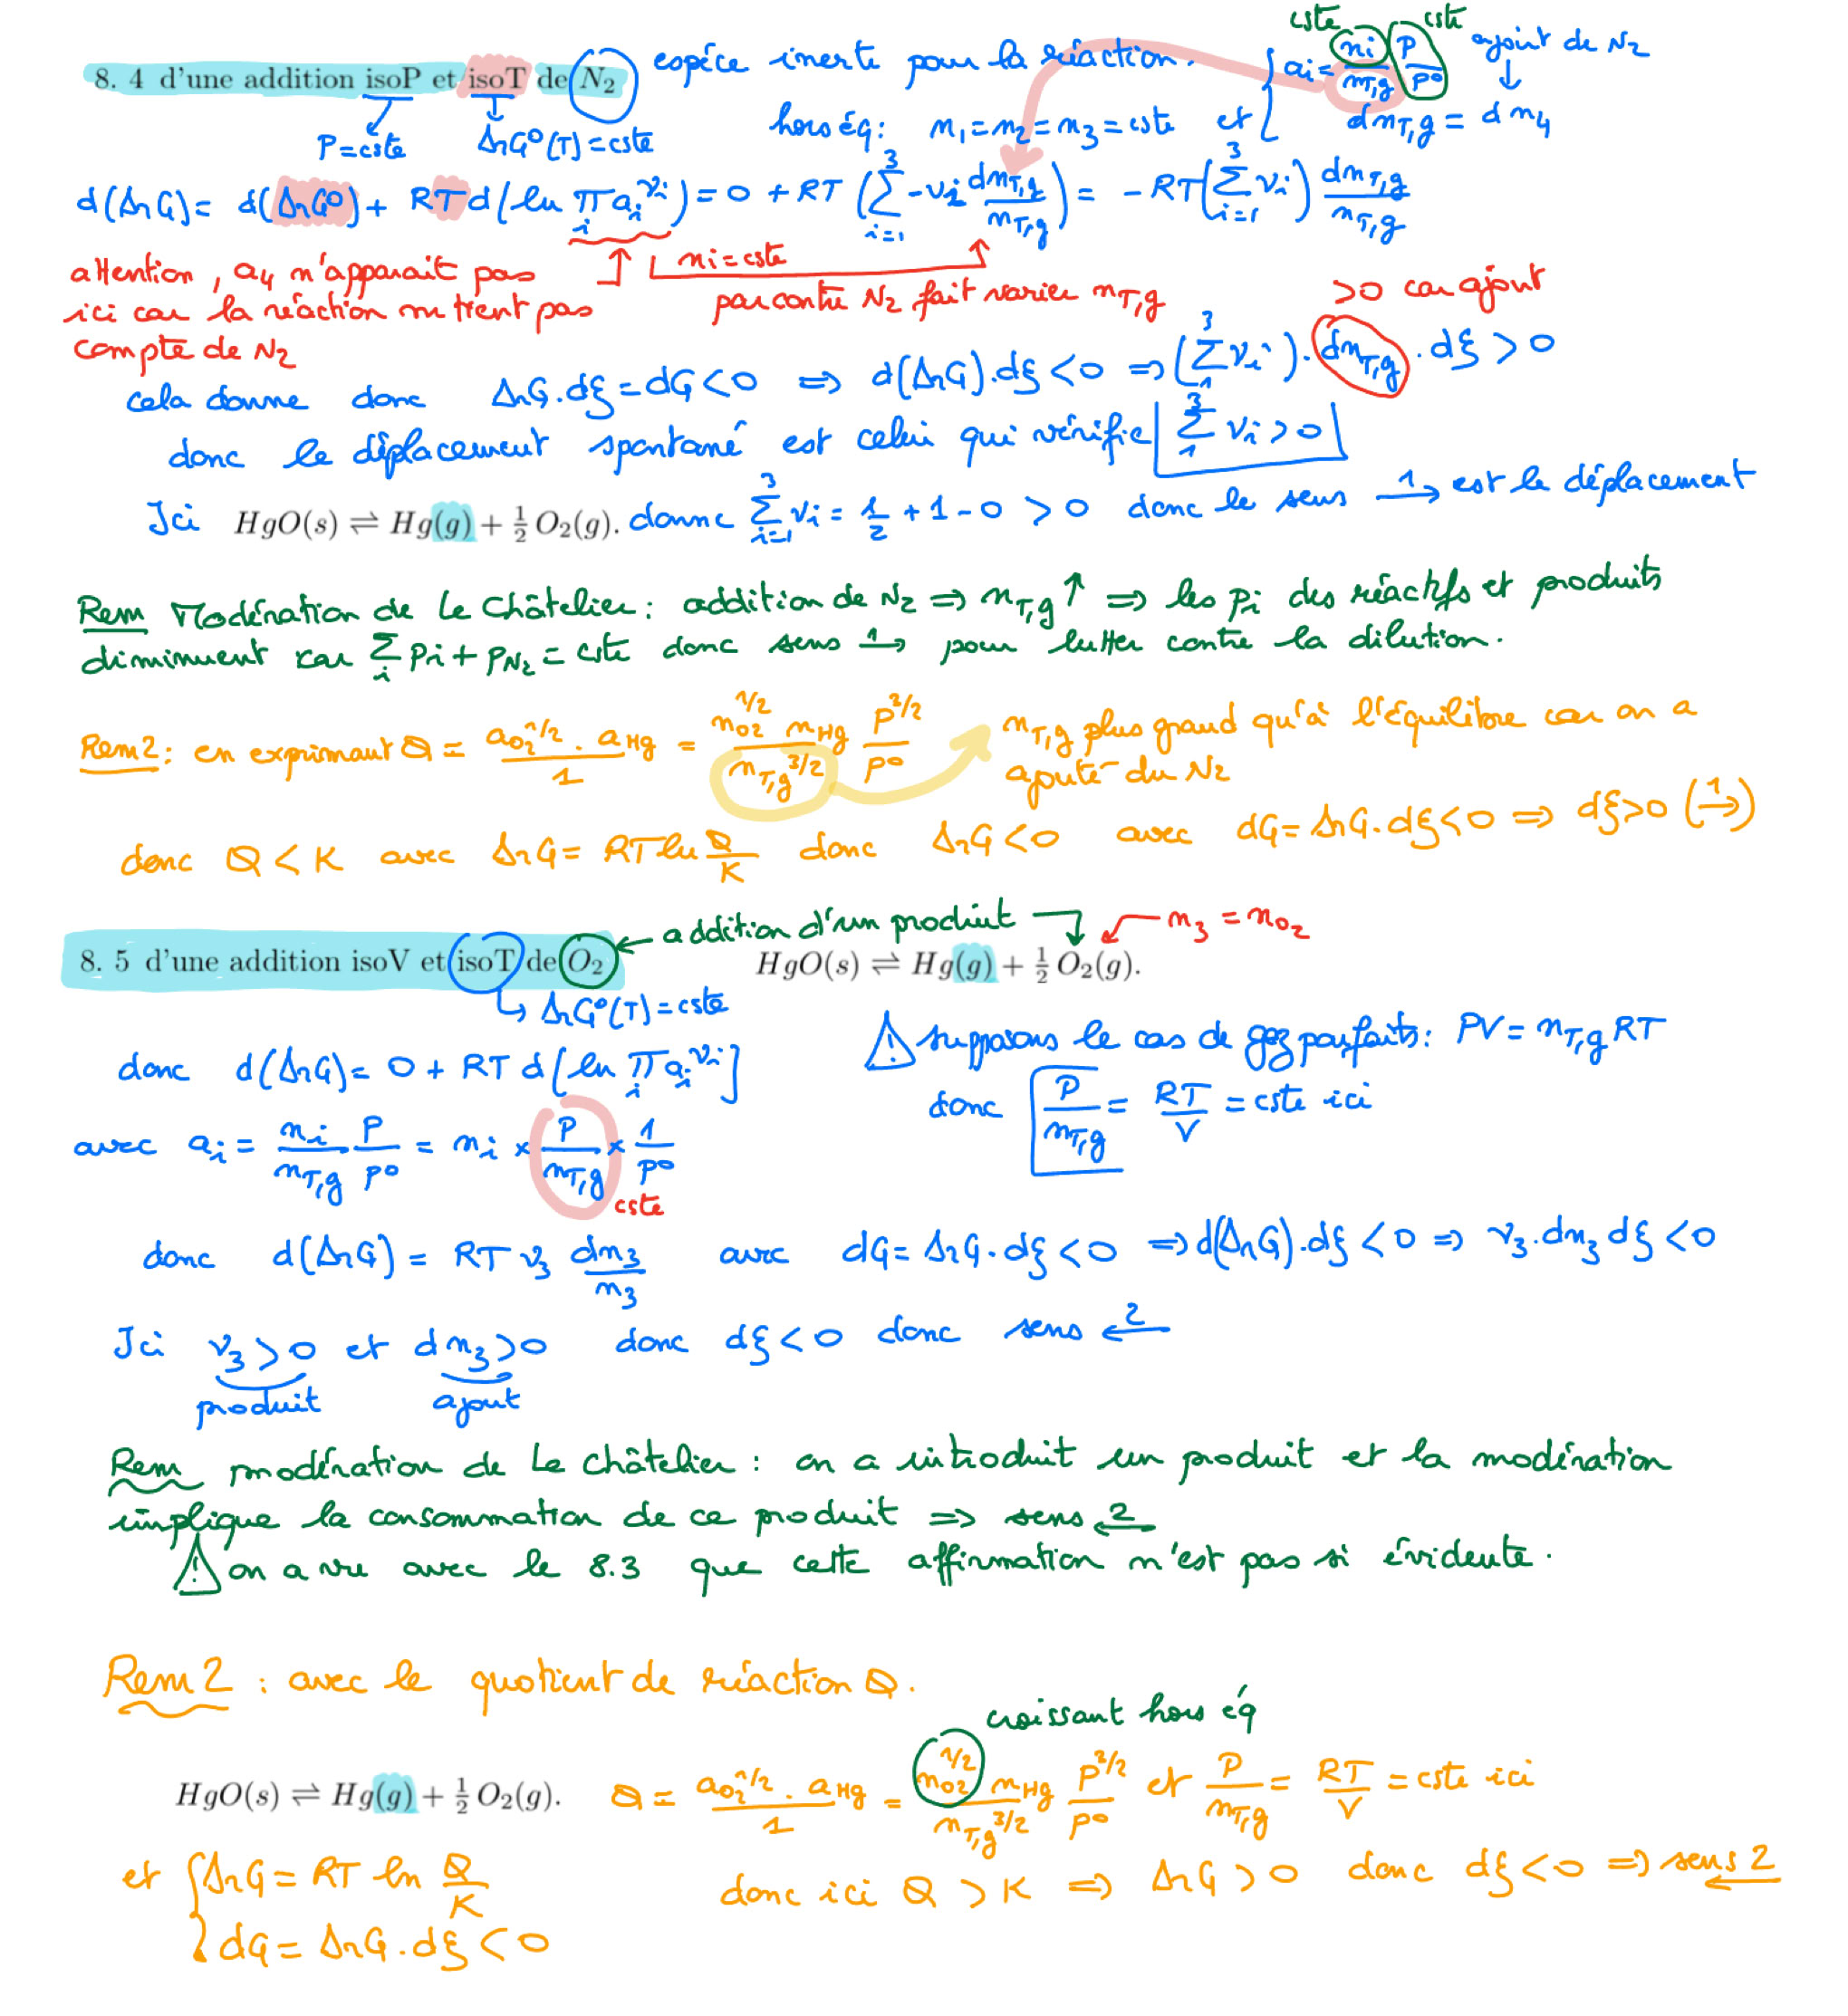 8. 4 d'une addition isoP et isoT de N₂ espéce inerte pour la réaction.
cste cste
{ ai = ni/nT,g P/P° ajout de N₂ ↓
P=cste ΔrG°(T)=cste hors éq: n₁=n₂=n₃=cste et { dnT,g = dn₄
d(ΔrG)= d(ΔrG°)+ RT d(ln ∏ᵢ aᵢ^νi)=0 +RT (∑_{i=1}^{3} -νi dnT,g/nT,g) = -RT(∑_{i=1}^{3} νi) dnT,g/nT,g
attention, a₄ n'apparait pas ↑ ni=cste
ici car la réaction ne tient pas par contre N₂ fait varier nT,g
compte de N₂
>0 car ajout
cela donne donc ΔrG.dξ=dG<0 ⇒ d(ΔrG).dξ<0 ⇒ (∑_1^3 νi). dnT,g .dξ>0
donc le déplacement spontané est celui qui vérifie ∑_1^3 νi>0
Ici HgO(s) ⇌ Hg(g) + ½ O₂(g). donne ∑_{i=1}^{3} νi = ½ +1-0 > 0 donc le sens →1 est le déplacement
Rem Modération de Le Châtelier: addition de N₂ ⇒ nT,g↑ ⇒ les Pi des réactifs et produits
diminuent car ∑ᵢ Pi + PN₂ = cste donc sens →1 pour lutter contre la dilution.
Rem2: en exprimant Q = aO₂^1/2 . aHg / 1 = nO₂^1/2 nHg / nT,g^3/2 P^3/2 / P° nT,g plus grand qu'à l'équilibre car on a
ajouté du N₂
donc Q < K avec ΔrG= RT ln Q/K donc ΔrG<0 avec dG= ΔrG.dξ<0 ⇒ dξ>0 (→1)
addition d'un produit n₃ = nO₂
8. 5 d'une addition isoV et isoT de O₂ HgO(s) ⇌ Hg(g) + ½ O₂(g).
↳ ΔrG°(T)=cste
donc d(ΔrG)= 0 + RT d[ln ∏ᵢ aᵢ^νi] ⚠ supposons le cas de gaz parfaits: PV = nT,g RT
donc P/nT,g = RT/V = cste ici
avec ai = ni/nT,g P/P° = ni × P/nT,g × 1/P°
cste
donc d(ΔrG) = RT ν₃ dn₃/n₃ avec dG= ΔrG.dξ<0 ⇒ d(ΔrG).dξ<0 ⇒ ν₃.dn₃ dξ<0
Ici ν₃>0 et dn₃>0 donc dξ<0 donc sens ←2
produit ajout
Rem modération de Le Châtelier : on a introduit un produit et la modération
implique la consommation de ce produit ⇒ sens ←2
⚠ on a vu avec le 8.3 que cette affirmation n'est pas si évidente.
Rem 2 : avec le quotient de réaction Q.
croissant hors éq
HgO(s) ⇌ Hg(g) + ½ O₂(g). Q = aO₂^1/2 . aHg / 1 = nO₂^1/2 nHg / nT,g^3/2 P^3/2 / P° et P/nT,g = RT/V = cste ici
et { ΔrG = RT ln Q/K donc ici Q > K ⇒ ΔrG > 0 donc dξ<0 ⇒ sens 2
dG = ΔrG.dξ < 0